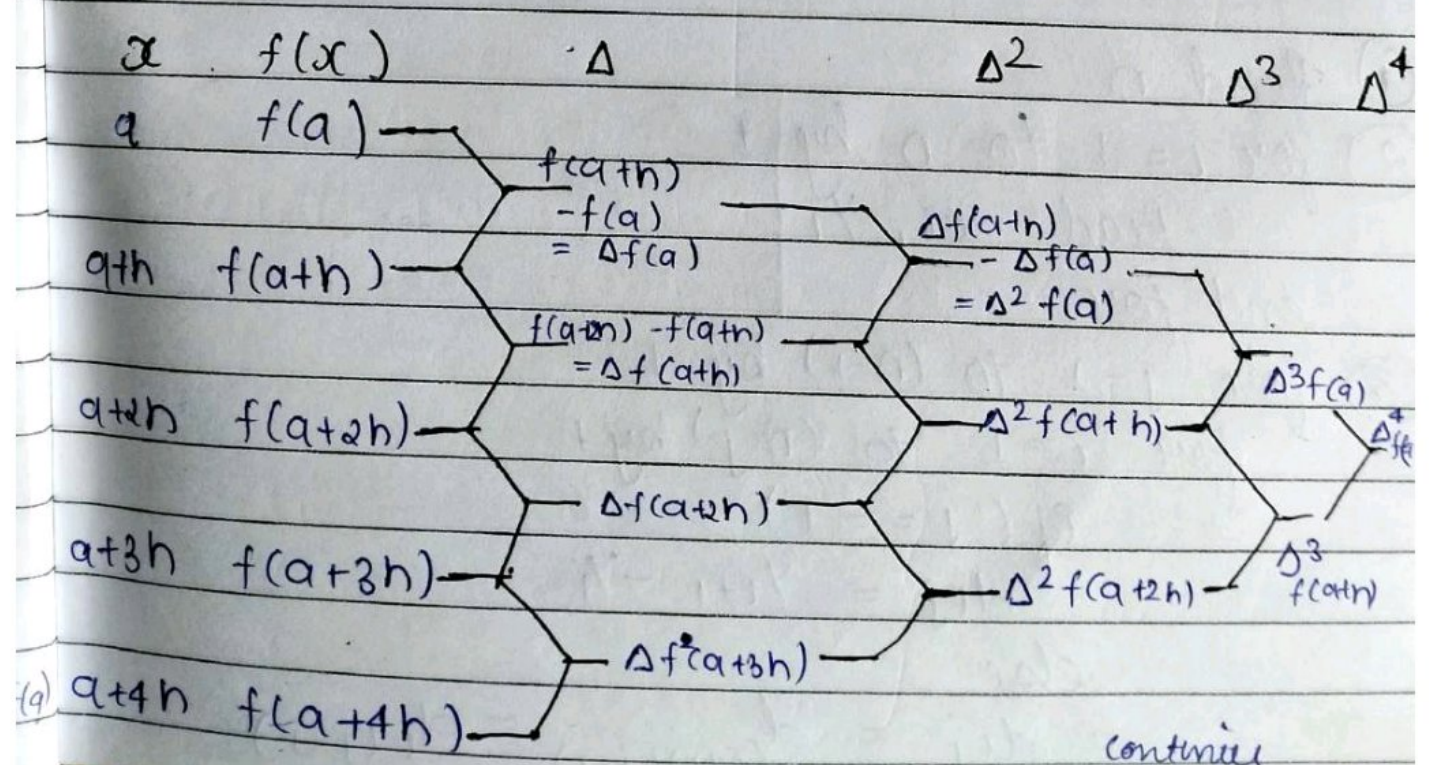 x f(x) Δ Δ² Δ³ Δ⁴
a f(a)
f(a+h)
-f(a)
= Δf(a)
Δf(a+h)
- Δf(a)
= Δ² f(a)
a+h f(a+h)
f(a+2h) -f(a+h)
= Δf(a+h)
Δ³f(a)
a+2h f(a+2h)
Δ²f(a+h)
Δ⁴
Δf(a+2h)
a+3h f(a+3h)
Δ³
f(a+h)
Δ²f(a+2h)
Δf(a+3h)
(a) a+4h f(a+4h)
continue